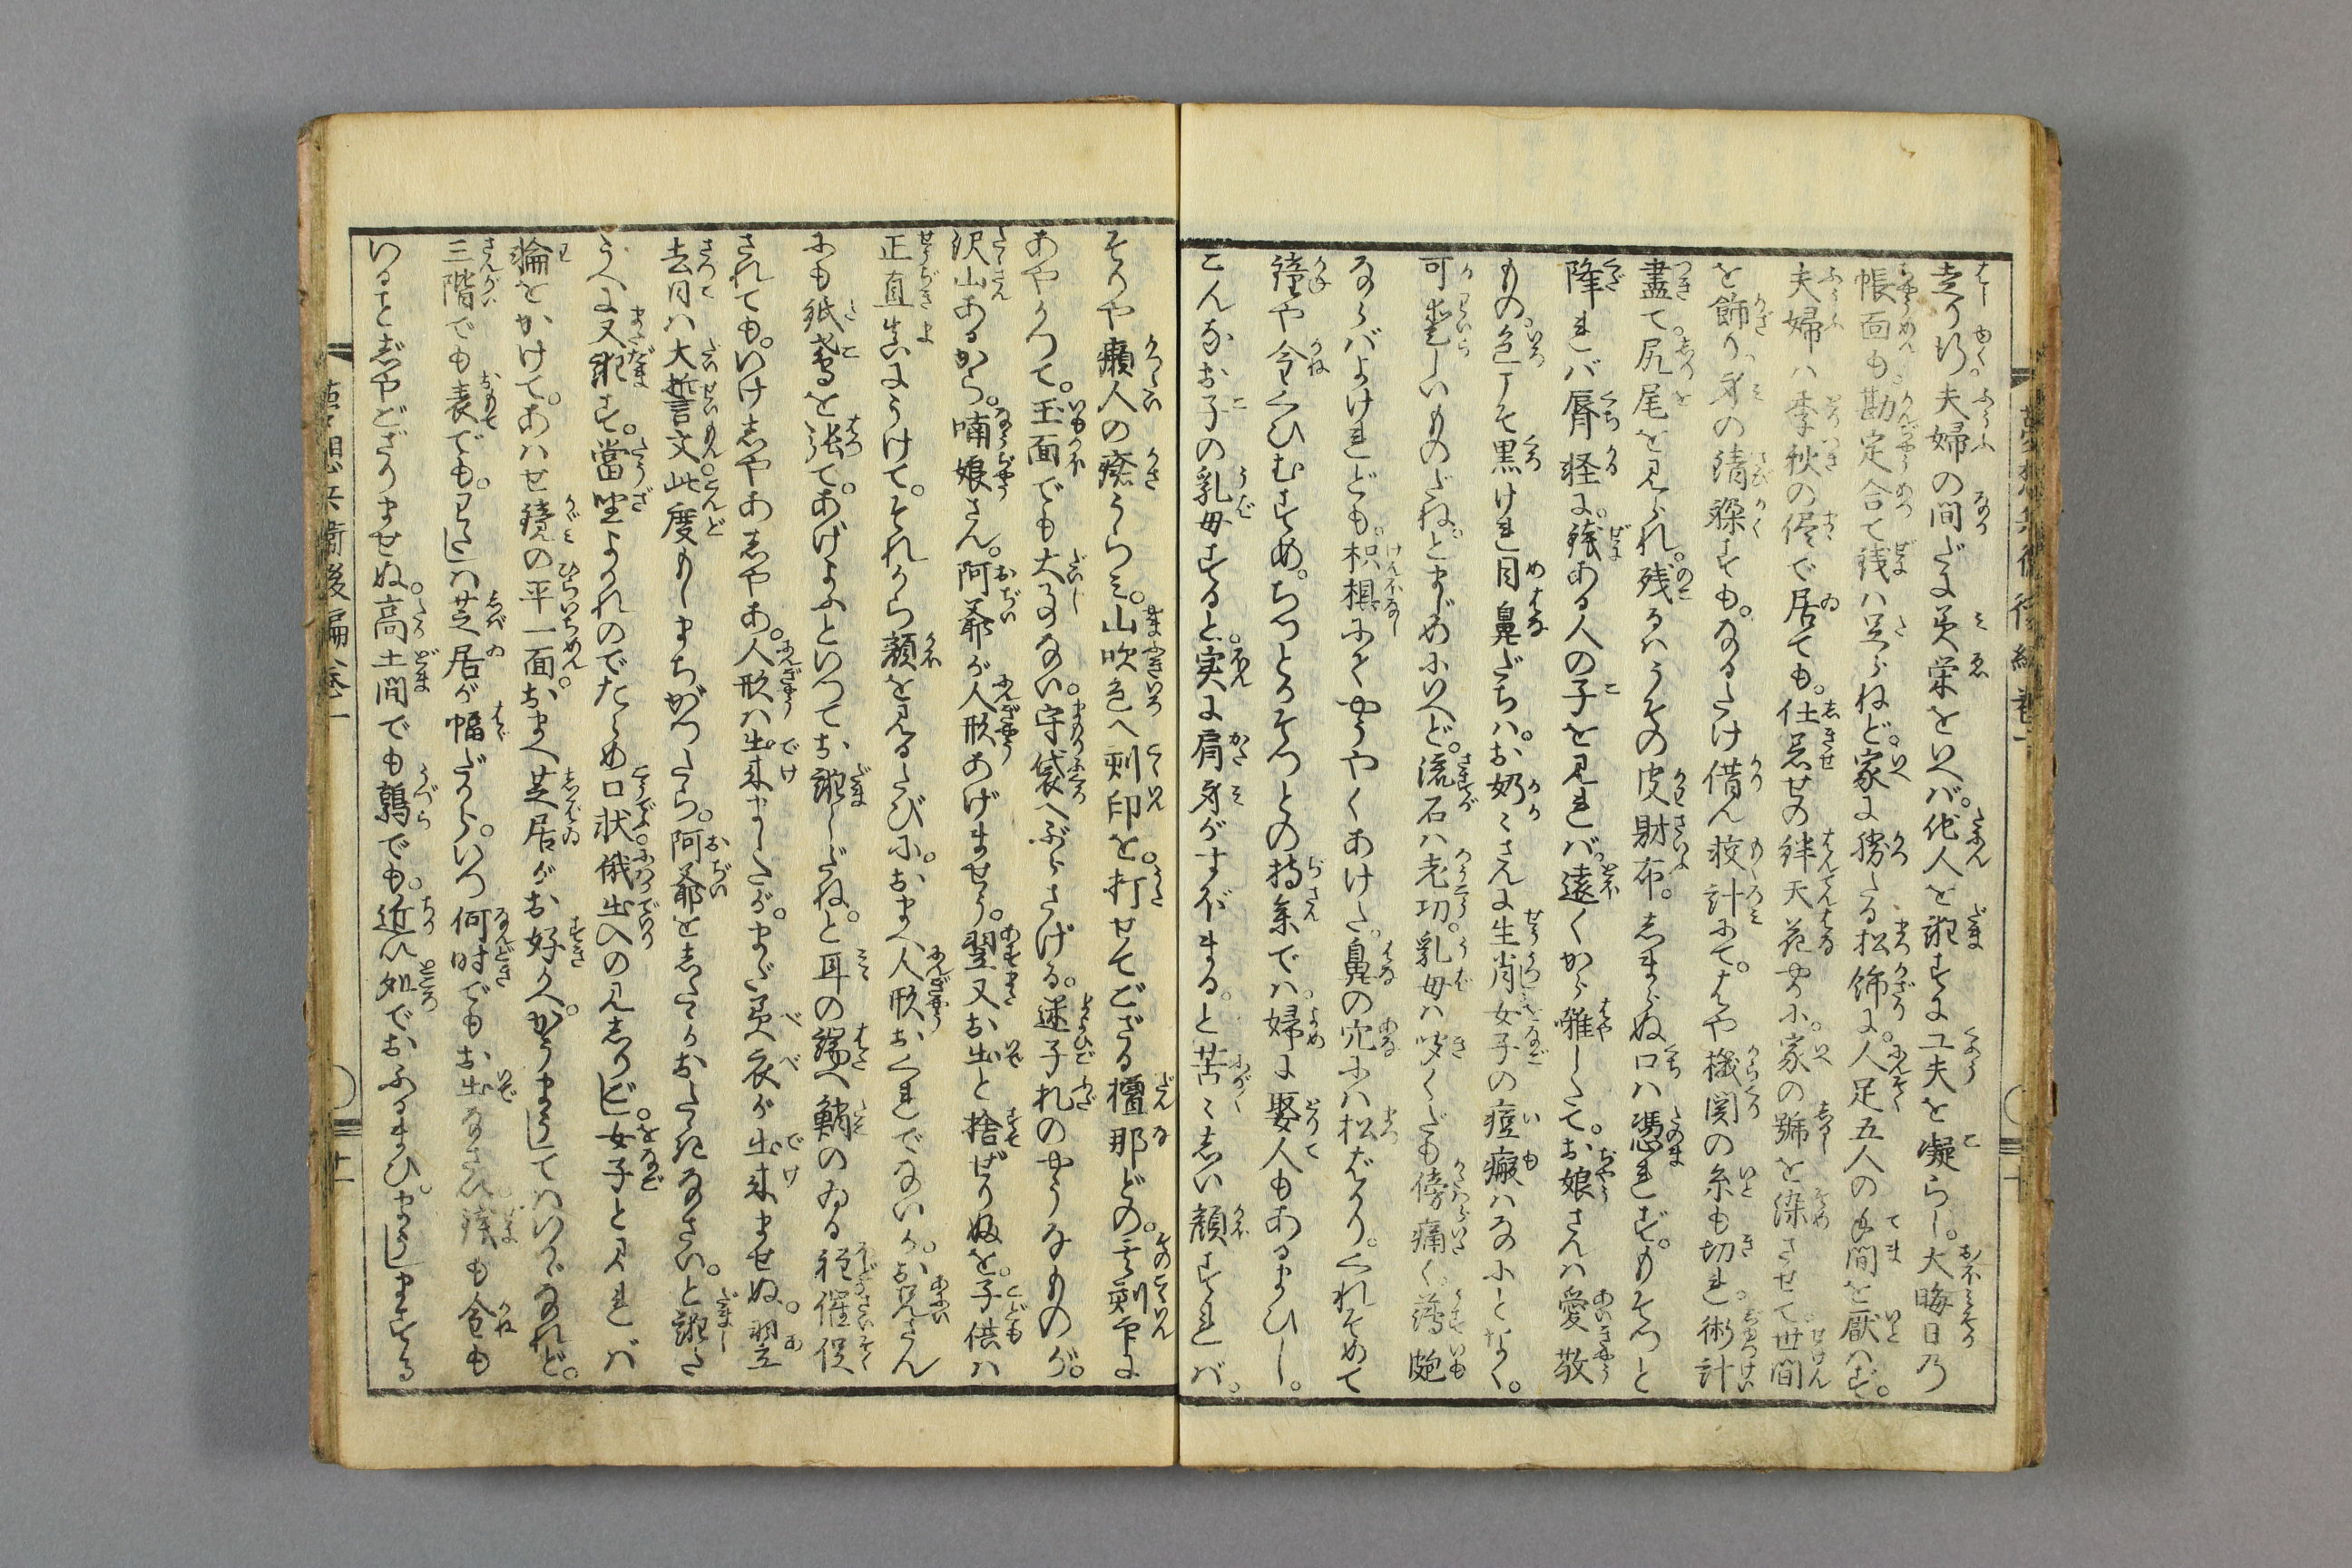 走り行。夫婦の間だに美栄をいへバ。他人を誑すに工夫を凝らし。大晦日乃
帳面も勘定合て銭ハ足らねど。家に勝たる松飾に。人足五人の手間を厭ハず。
夫婦ハ季秋の侭で居ても。仕着せの絆天花やかに。家の號を染させて世間
を飾り。身の錆躱すも。なるたけ借ん狡計にて。はや機関の糸も切れ術計
盡て。尻尾を見られ。残るハうその皮財布。しまらぬ口ハ憑れず。もそつと
降れバ脣軽に。銭ある人の子を見れバ。遠くから囃したて。お娘さんハ愛敬
もの。色こそ黒けれ目鼻だちハ。お奶々さんに生肖女子の痘瘢ハなにとなく。
可愛しいものだね。とまじめにいへど。流石ハ老功。乳母ハ咲くだも傍痛く薄皰
ならバよけれども。枳椇にてやうやくあけた。鼻の穴にハ松ばかり。くれそめて
鐘や金くひむすめ。ちつとやそつとの持参でハ。婦に娶人もあるまひし。
こんなお子の乳母すると。実に肩身がすぼまる。と苦々しい顔すれバ。
そりや癩人の瘡うらミ。山吹色へ刻印を。打せてござる檀那どの。その刻印に
あやかつて。玉面でも大事ない。守袋へぶらさげる。迷子札のやうなものが。
沢山あるから。喃娘さん。阿爺が人形あげませう。翌又お出と捨ぜりふを。子供ハ
正直真にうけて。それから顔を見るたびに。おまへ人形おくれでないか。お兄さん
にも紙鳶を張て。あげよふといつてお誑しだね。と耳の端へ鮹のゐる程催促
されても。いけしやあしやあ。人形ハ出来ましたが。まだ美衣が出来ませぬ。翌
去日ハ大誓文此度もしまちがつたら。阿爺をしたたかおたたきなさい。と誑した
うへに又誑す。當坐よかれのでたらめ口状俄出入の見しりごし。女子と見れバ
輪をかけて。あハせ鏡の平一面。おまへ芝居がお好か。かうまうしてハいかゞなれど。
三階でも表でも。わたしハ芝居が幅だから。いつ何時でもお出なさい銭も金も
いることじやござりませぬ。高土間でも鶉でも。近い処でおふるまひ。まうしまする
夢想兵衛後編卷一
夢想兵衛後編卷一
十
十一